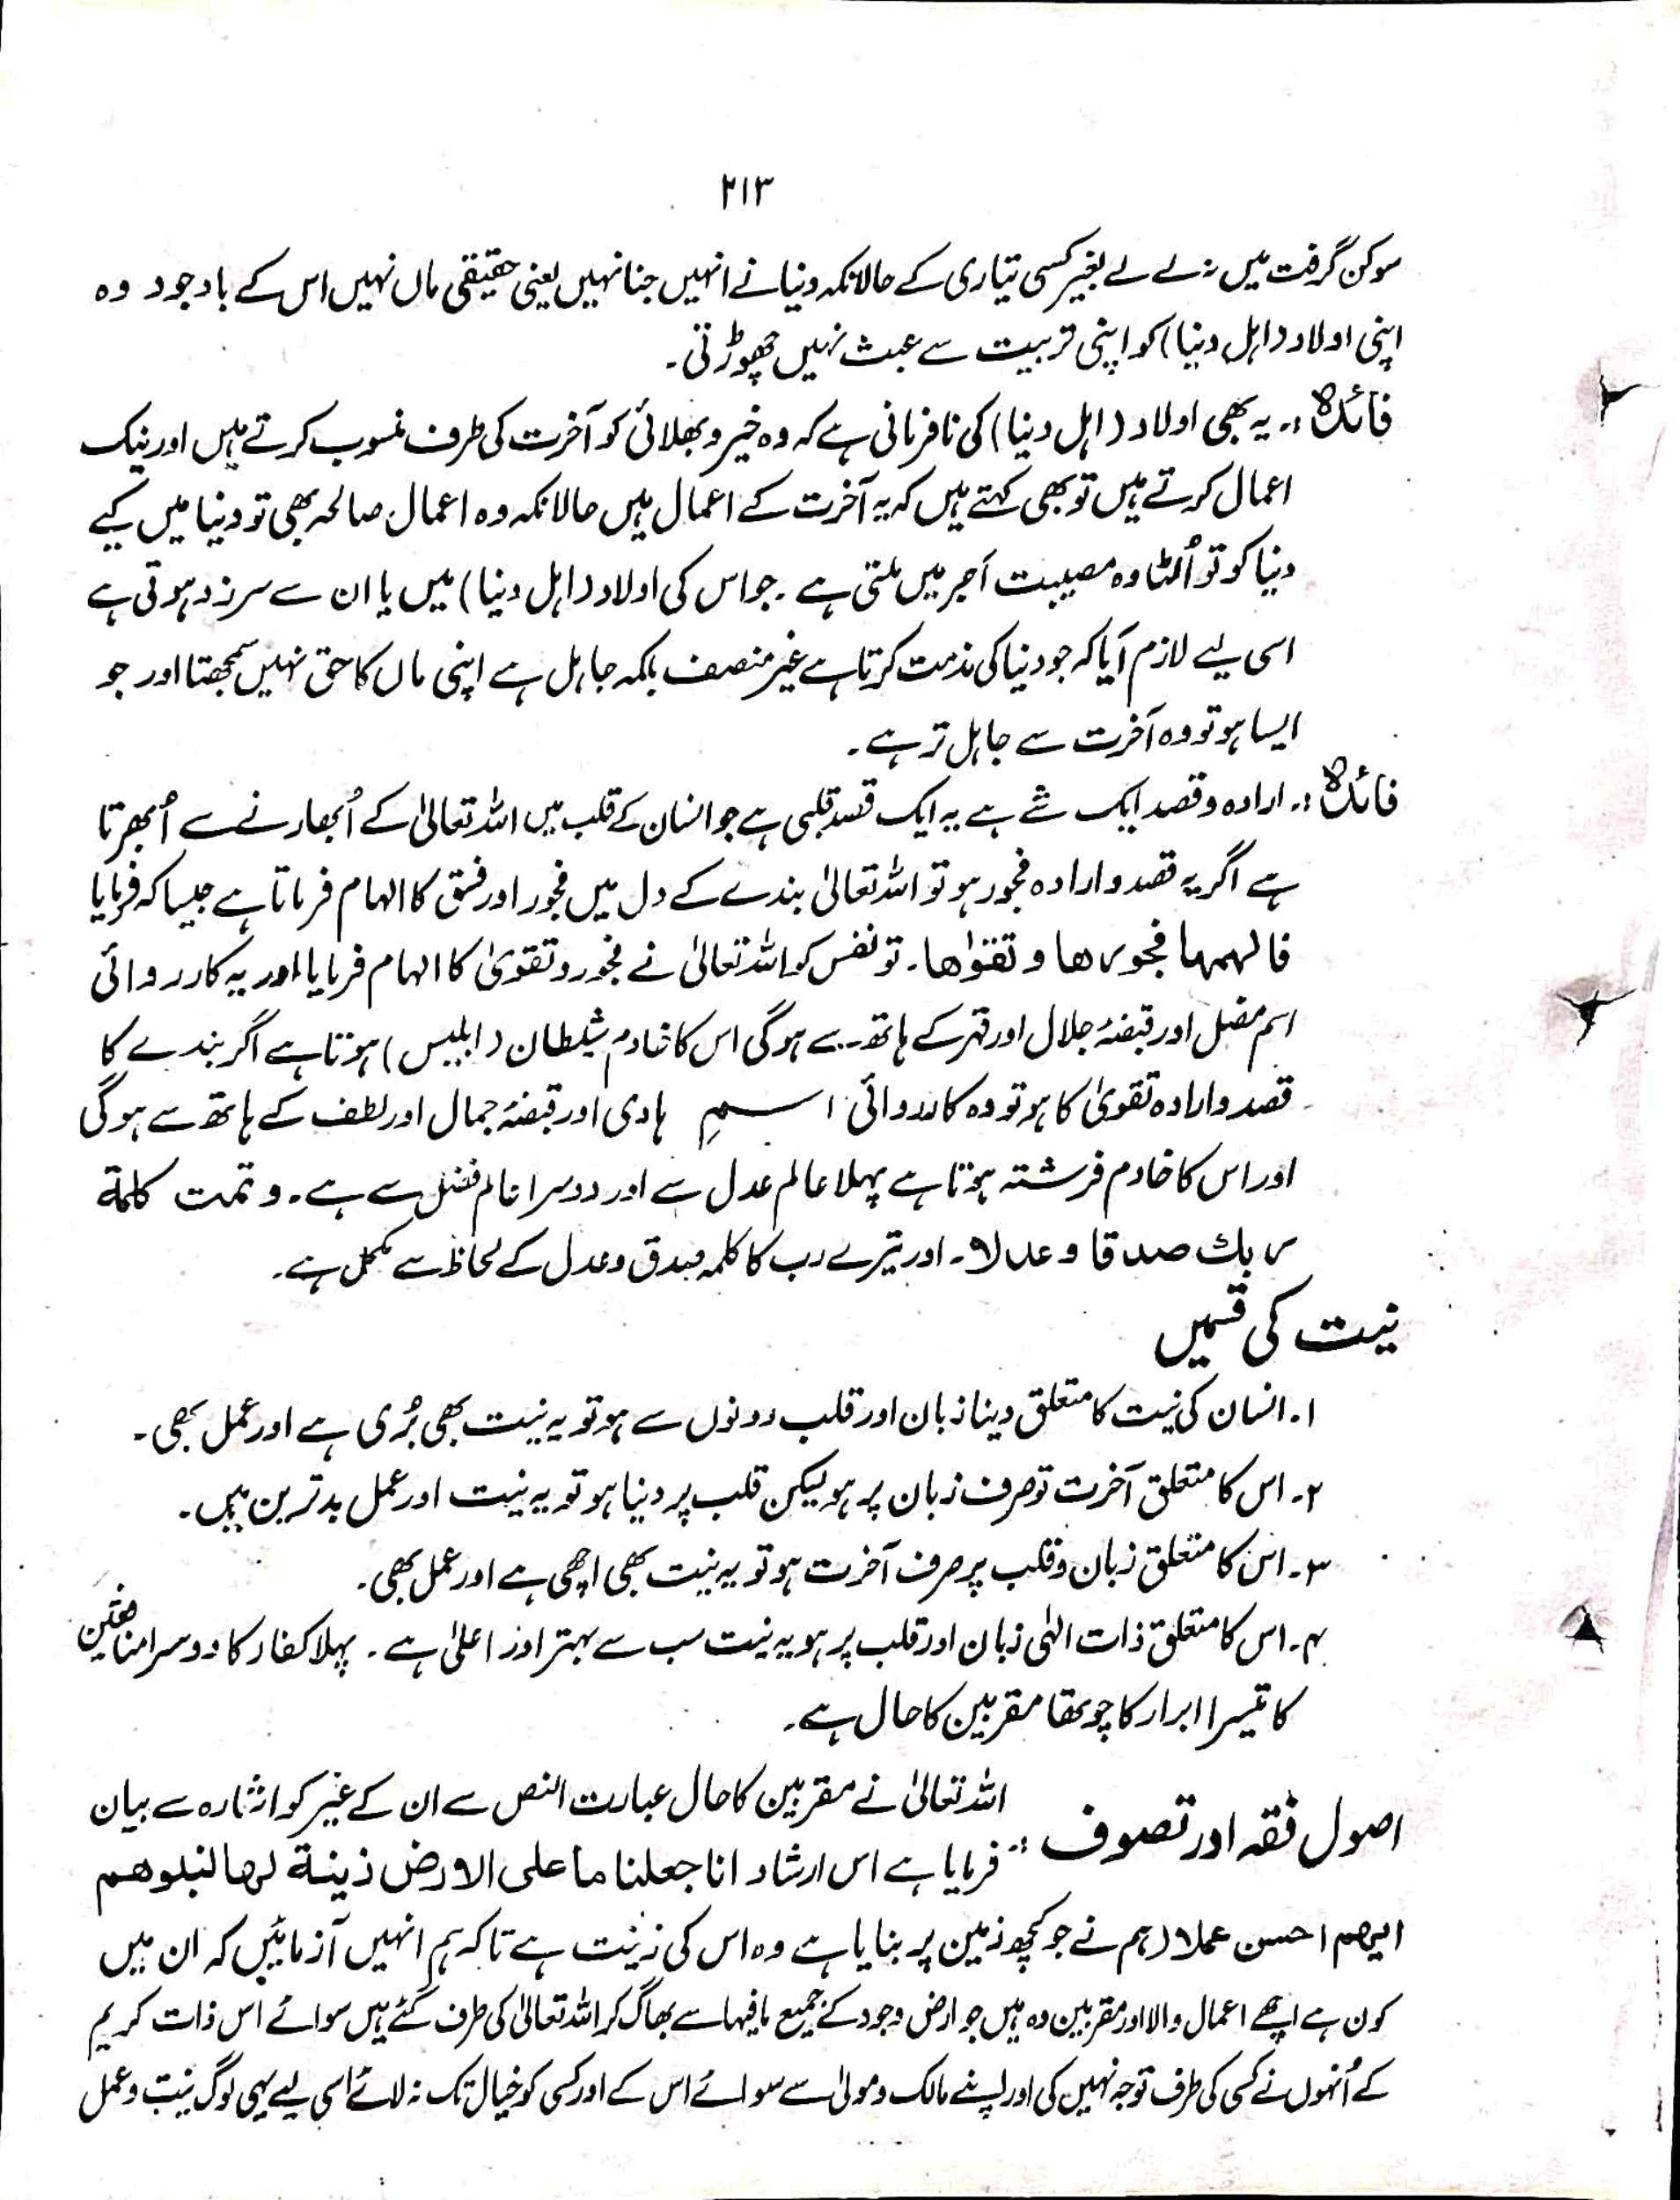 ۲۱۳
سوکن گرفت میں نہ لے لے بغیر کسی تیاری کے حالانکہ دنیا نے انہیں جنا نہیں یعنی حقیقی ماں نہیں اس کے باوجود وہ
اپنی اولاد (اہل دنیا) کو اپنی تربیت سے عبث نہیں چھوڑتی۔
فائدہ :۔ یہ بھی اولاد (اہل دنیا) کی نافرمانی ہے کہ وہ خیر و بھلائی کو آخرت کی طرف منسوب کرتے ہیں اور نیک
اعمال کرتے ہیں تو بھی کہتے ہیں کہ یہ آخرت کے اعمال ہیں حالانکہ وہ اعمال صالحہ بھی تو دنیا میں کیے
دنیا کو تو اُلٹا وہ مصیبت اجر میں ملتی ہے۔ جو اس کی اولاد (اہل دنیا) میں یا ان سے سرزد ہوتی ہے
اسی لیے لازم آیا کہ جو دنیا کی مذمت کرتا ہے غیر منصف بلکہ جاہل ہے اپنی ماں کا حق نہیں سمجھتا اور جو
ایسا ہو تو وہ آخرت سے جاہل تر ہے۔
فائدہ :۔ ارادہ و قصد ایک شے ہے یہ ایک قصد قلبی ہے جو انسان کے قلب میں اللہ تعالیٰ کے اُبھارنے سے اُبھرتا
ہے اگر یہ قصد و ارادہ فجور ہو تو اللہ تعالیٰ بندے کے دل میں فجور اور فسق کا الہام فرماتا ہے جیسا کہ فرمایا
فالہمہا فجورھا و تقوٰھا۔ تو نفس کو اللہ تعالیٰ نے فجور و تقویٰ کا الہام فرمایا اور یہ کارروائی
اسم مضل اور قبضۂ جلال اور قہر کے ہاتھ سے ہوگی اس کا خادم شیطان (ابلیس) ہوتا ہے اگر بندے کا
قصد و ارادہ تقویٰ کا ہو تو وہ کارروائی اسمِ ہادی اور قبضۂ جمال اور لطف کے ہاتھ سے ہوگی
اور اس کا خادم فرشتہ ہوتا ہے پہلا عالم عدل سے اور دوسرا عالم فضل سے ہے۔ و تمت کلمة
ربك صدقا و عدلا۔ اور تیرے رب کا کلمہ صدق و عدل کے لحاظ سے مکمل ہے۔
نیت کی قسمیں
۱۔ انسان کی نیت کا متعلق دینا زبان اور قلب دونوں سے ہو تو یہ نیت بھی بُری ہے اور عمل بھی۔
۲۔ اس کا متعلق آخرت تو صرف زبان پر ہو لیکن قلب پر دنیا ہو تو یہ نیت اور عمل بدترین ہیں۔
۳۔ اس کا متعلق زبان و قلب پر صرف آخرت ہو تو یہ نیت بھی اچھی ہے اور عمل بھی۔
۴۔ اس کا متعلق ذات الہٰی زبان اور قلب پر ہو یہ نیت سب سے بہتر اور اعلیٰ ہے۔ پہلا کفار کا دوسرا منافقین
کا تیسرا ابرار کا چوتھا مقربین کا حال ہے۔
اصول فقہ اور تصوف :۔ اللہ تعالیٰ نے مقربین کا حال عبارت النص سے ان کے غیر کو اشارہ سے بیان
فرمایا ہے اس ارشاد انا جعلنا ما علی الارض زینة لہا لنبلوھم
ایھم احسن عملا (ہم نے جو کچھ زمین پر بنایا ہے وہ اس کی زینت ہے تاکہ ہم انہیں آزمائیں کہ ان میں
کون ہے اچھے اعمال والا اور مقربین وہ ہیں جو ارض وجود کے جمیع مافیہا سے بھاگ کر اللہ تعالیٰ کی طرف گئے ہیں سوائے اس ذات کریم
کے اُنہوں نے کسی کی طرف توجہ نہیں کی اور اپنے مالک و مولیٰ سے سوائے اس کے اور کسی کو خیال تک نہ لائے اسی لیے یہی لوگ نیت و عمل